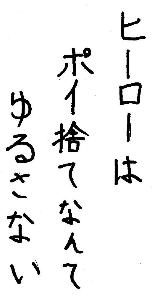 ヒーローは
ポイ捨てなんて
ゆるさない